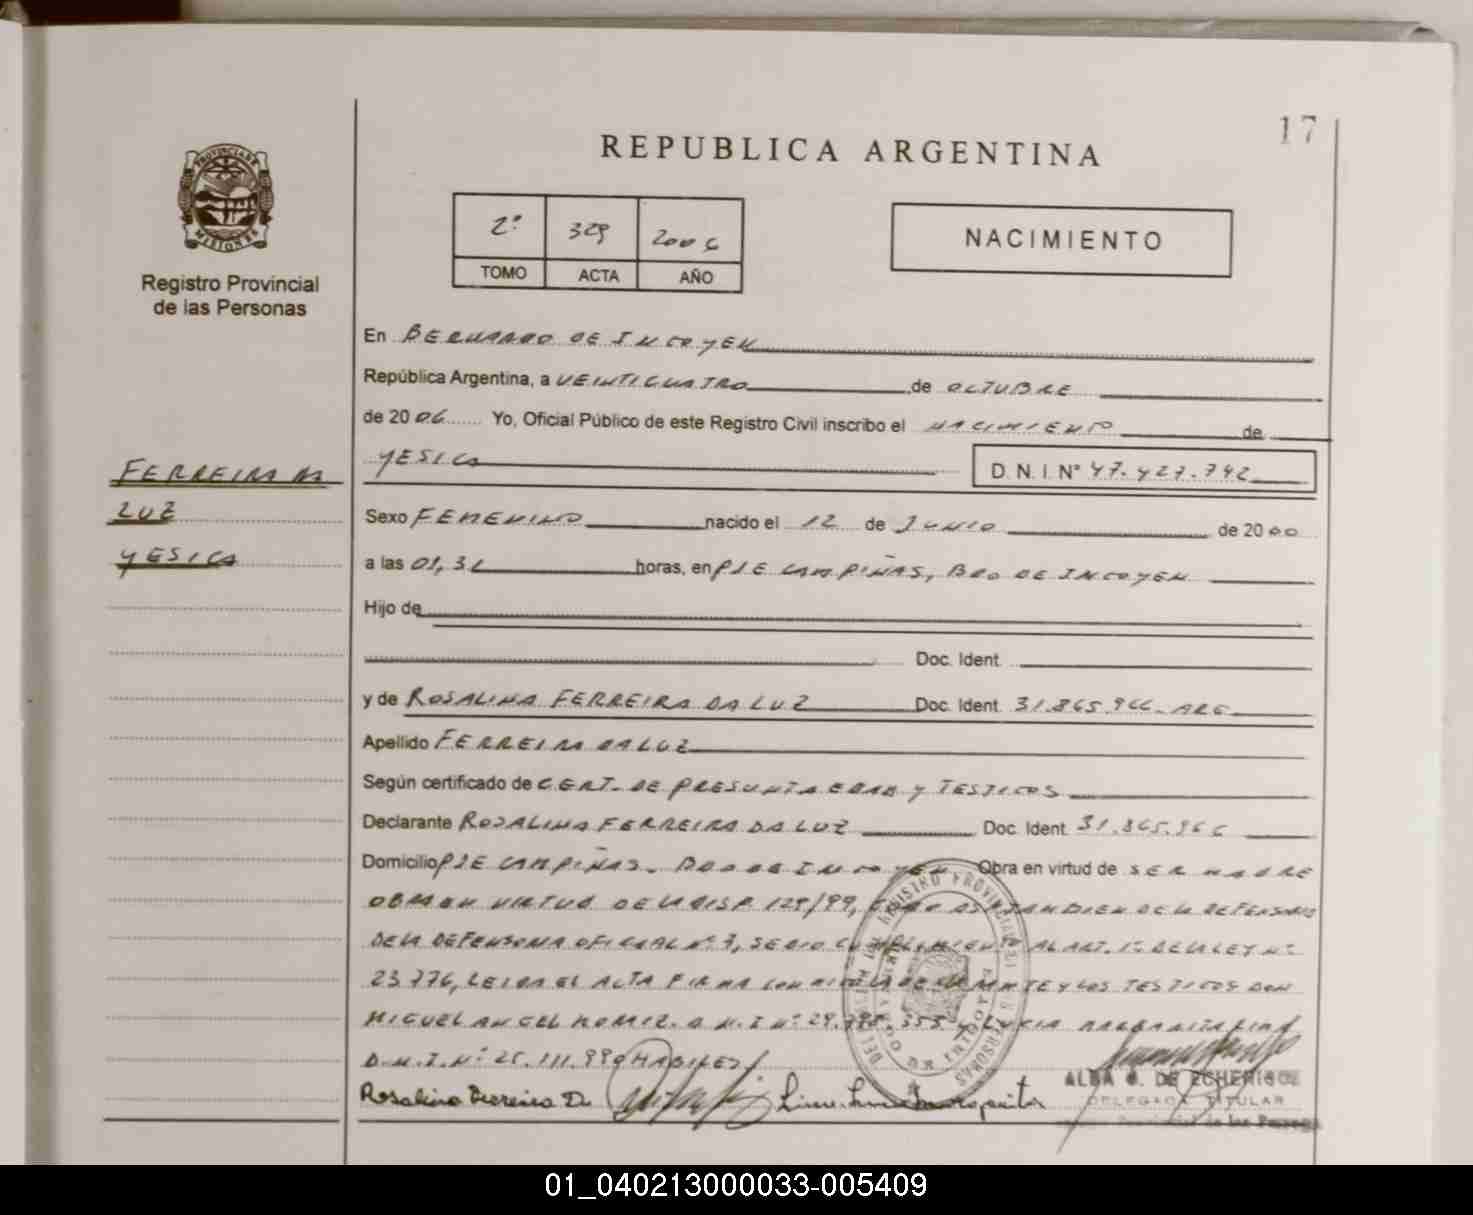 17
REPUBLICA ARGENTINA
PROVINCIA DE
MISIONES
Registro Provincial
de las Personas
2º 329 2006
TOMO ACTA AÑO
NACIMIENTO
En BERNARDO DE IRIGOYEN
República Argentina, a VEINTICUATRO de OCTUBRE
de 2006 Yo, Oficial Público de este Registro Civil inscribo el NACIMIENTO de
YESICA D.N.I.Nº 47.427.742
FERREIRA DA
LUZ
YESICA
Sexo FEMENINO nacido el 12 de JUNIO de 2000
a las 01,3 horas, en PJE CAMPIÑAS, BDO DE IRIGOYEN
Hijo de
Doc. Ident.
y de ROSALINA FERREIRA DA LUZ Doc. Ident. 31.865.966 - ARG
Apellido FERREIRA DA LUZ
Según certificado de CERT. DE PRESUNTA EDAD y TESTIGOS
Declarante ROSALINA FERREIRA DA LUZ Doc. Ident. 31.865.966
Domicilio PJE CAMPIÑAS. BDO DE IRIGOYEN Obra en virtud de SER MADRE
OBRA EN VIRTUD DE LA DISP. 129/99, COMO ASI TAMBIEN DE LA
DE LA DEFENSORIA OFICIAL Nº 7, SE DIO CUMPLIMIENTO AL ART. 1º DE LA LEY Nº
23.776, LEIDA EL ACTA FIRMA CONMIGO LA DECLARANTE Y LOS TESTIGOS DON
MIGUEL ANGEL D.N.I Nº 29. 355 y LUCIA MARGARITA
D.N.I.Nº 25.111.990 HABILES
Rosalina Ferreira Da
ALBA DE
DELEGADA TITULAR
Provincial de las Personas
01_040213000033-005409